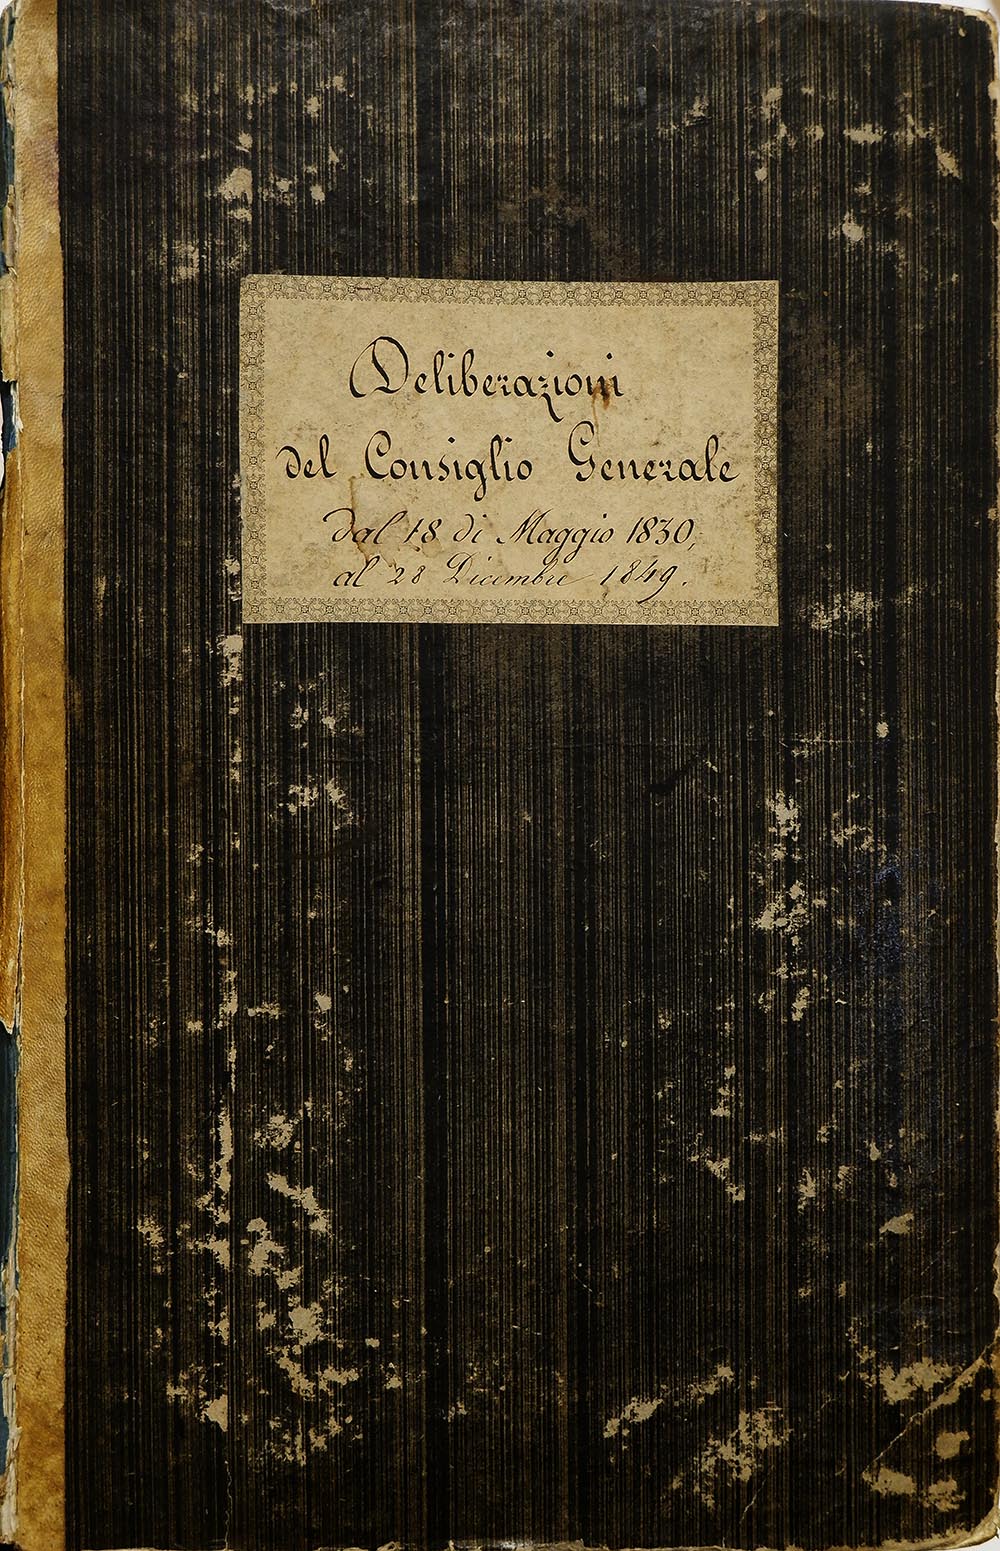 Deliberazioni
del Consiglio Generale
dal 18 di Maggio 1830,
al 28 Dicembre 1849.